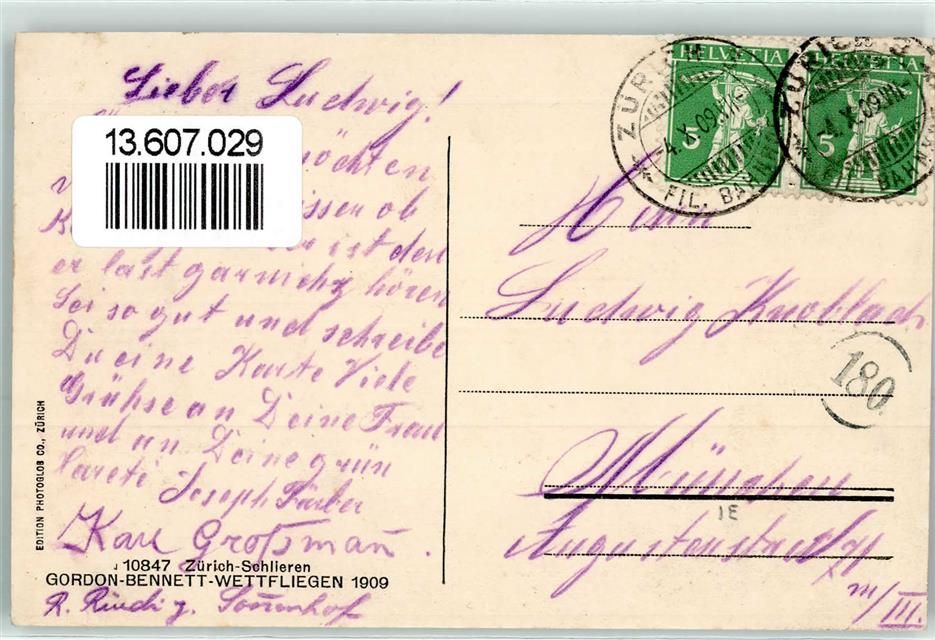 Lieber Ludwig!
13.607.029
möchten
wissen ob
ist den
er last garnicht hören
Sei so gut und schreibe
Du eine Karte Viele
Grühse an Deine Frau
und an Deine
Joseph Färber
Karl Großmann.
10847 Zürich-Schlieren
GORDON-BENNETT-WETTFLIEGEN 1909
Sonnenhof
EDITION PHOTOGLOB CO., ZÜRICH
HELVETIA
5
HELVETIA
5
ZÜRICH
-4.X.09.
FIL. BAHNH
ZÜRICH
-4.X.09.
FIL. BAHNH
Herrn
Ludwig Knoblach
180
München
IE
Augustenstraße
III.